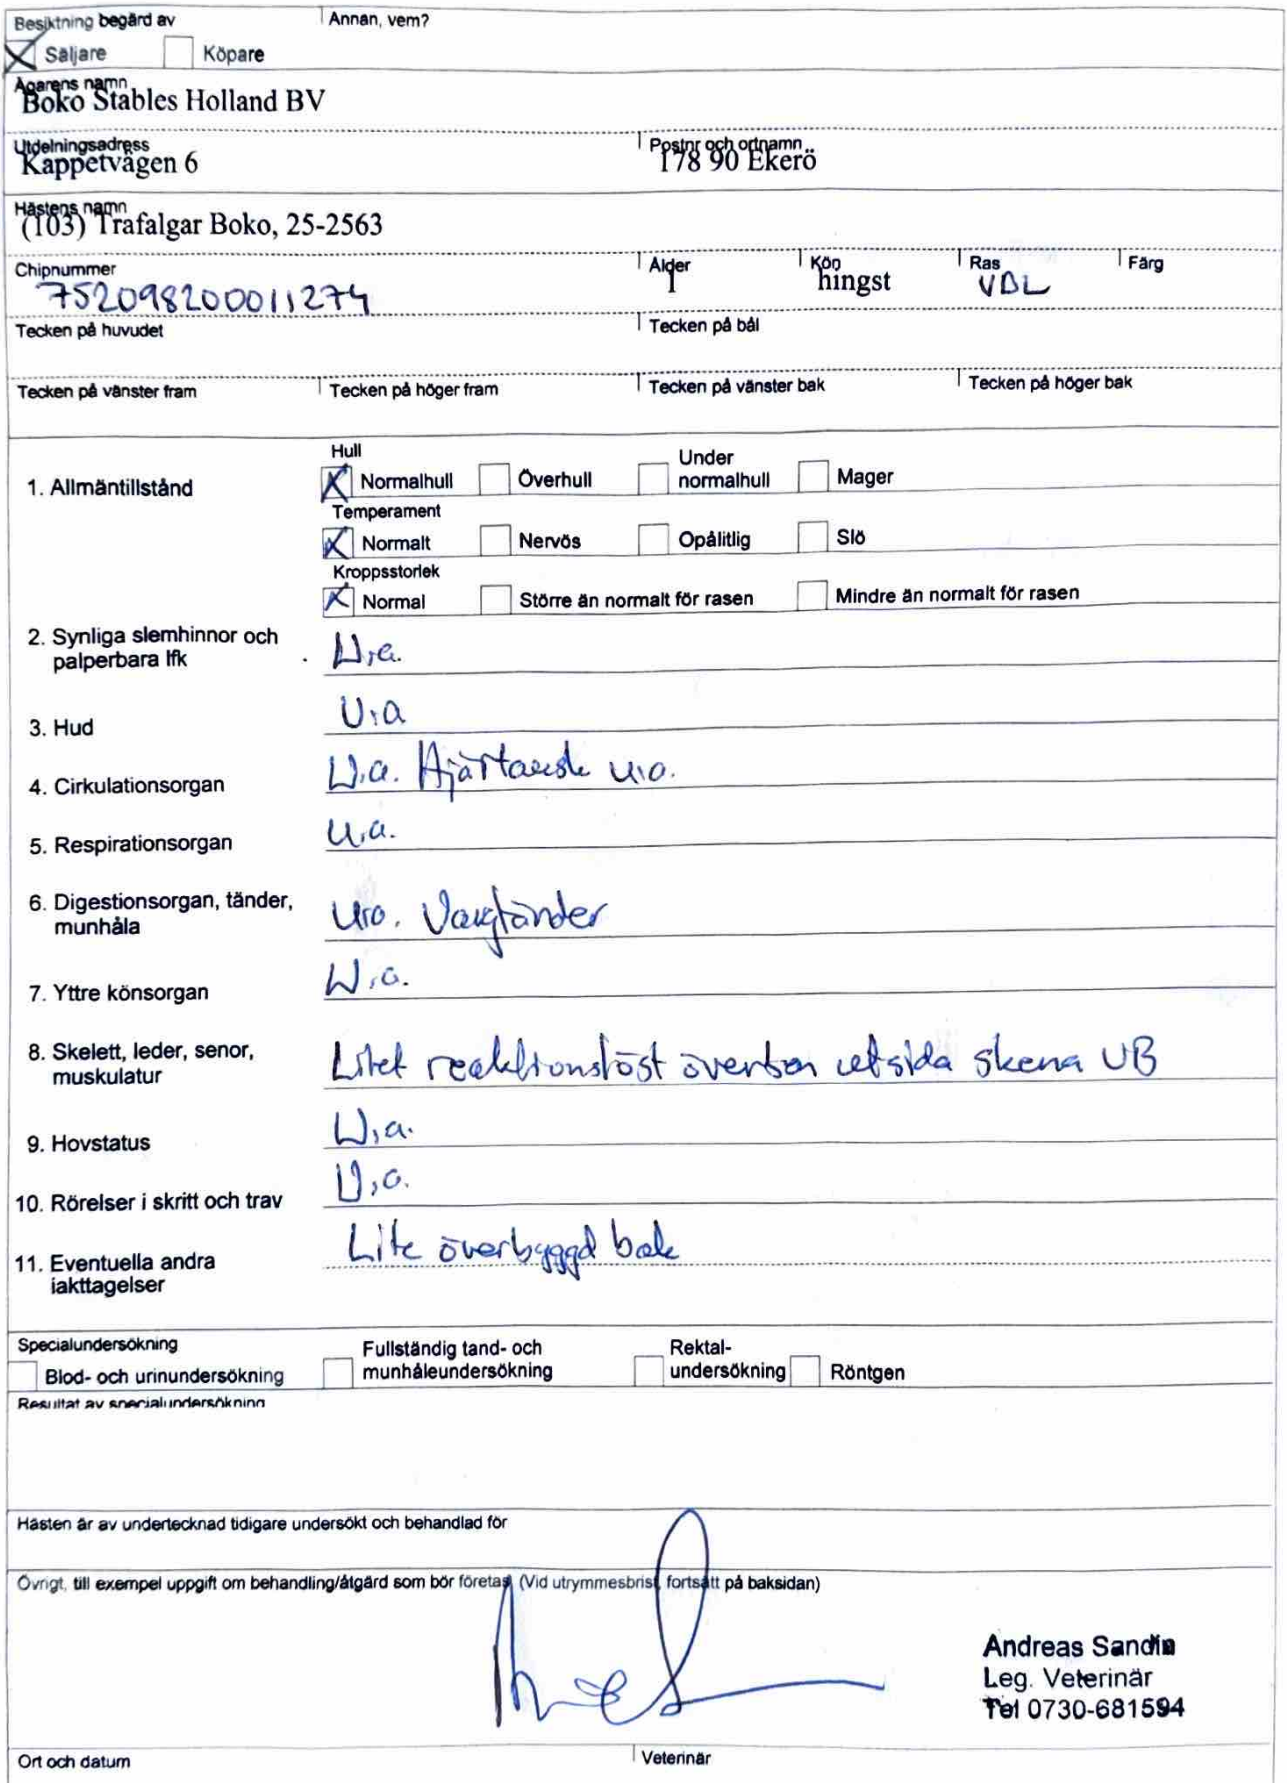 Besiktning begärd av Annan, vem?
Säljare Köpare
Ägarens namn
Boko Stables Holland BV
Utdelningsadress Postnr och ortnamn
Kappetvägen 6 178 90 Ekerö
Hästens namn
(103) Trafalgar Boko, 25-2563
Chipnummer Ålder Kön Ras Färg
752098200011274 1 hingst VBL
Tecken på huvudet Tecken på bål
Tecken på vänster fram Tecken på höger fram Tecken på vänster bak Tecken på höger bak
Hull
1. Allmäntillstånd Normalhull Överhull Under normalhull Mager
Temperament
Normalt Nervös Opålitlig Slö
Kroppsstorlek
Normal Större än normalt för rasen Mindre än normalt för rasen
2. Synliga slemhinnor och
palperbara lfk U.a.
3. Hud U.a
4. Cirkulationsorgan U.a. Hjärtausk u.a.
5. Respirationsorgan U.a.
6. Digestionsorgan, tänder,
munhåla U.a. Vargtänder
7. Yttre könsorgan U.a.
8. Skelett, leder, senor,
muskulatur Litet reaktionslöst överben utsida skena VB
9. Hovstatus U.a.
10. Rörelser i skritt och trav U.a.
11. Eventuella andra Lite överbyggd bak
iakttagelser
Specialundersökning
Blod- och urinundersökning Fullständig tand- och munhåleundersökning Rektal-undersökning Röntgen
Resultat av specialundersökning
Hästen är av undertecknad tidigare undersökt och behandlad för
Övrigt, till exempel uppgift om behandling/åtgärd som bör företas (Vid utrymmesbrist, fortsätt på baksidan)
Andreas Sandin
Leg. Veterinär
Tel 0730-681594
Ort och datum Veterinär